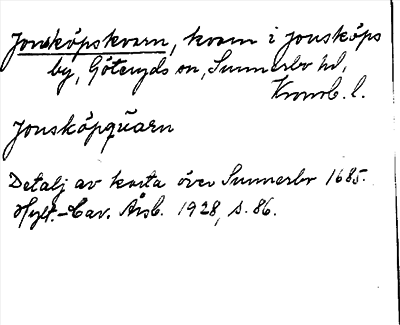 Jonsköpskvarn, kvarn i Jonsköps
by, Göteryds sn, Sunnerbo hd,
Kronob. l.
Jonsköpquarn
Detalj av karta över Sunnerbo 1685.
Hylt.-Cav. Årsb. 1928, s. 86.